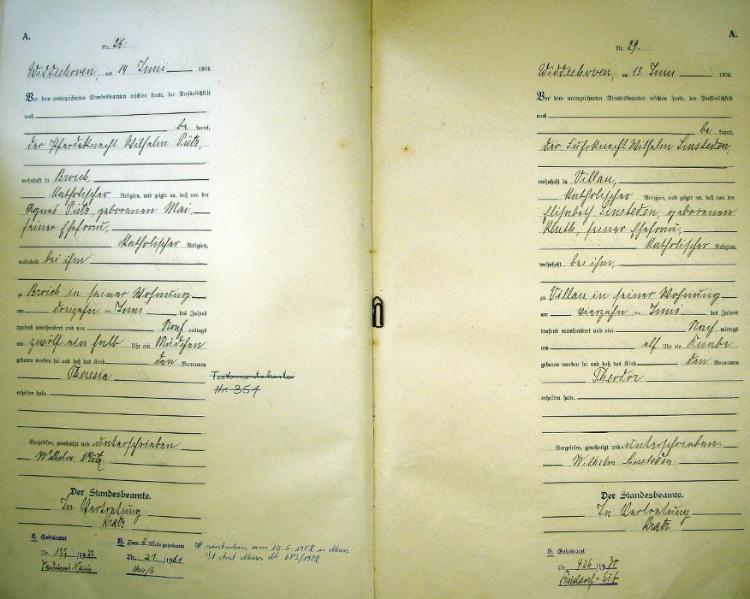 A.
Nr. 28.
Widdeshoven, am 14 Juni 1904.
Vor dem unterzeichneten Standesbeamten erschien heute, der Persönlichkeit
nach
be kannt,
der Pferdeknecht Wilhelm Pütz,
wohnhaft in Broich,
katholischer Religion, und zeigte an, daß von der
Agnes Pütz geborenen Mai,
seiner Ehefrau,
katholischer Religion,
wohnhaft bei ihm
zu Broich in seiner Wohnung
am dreizehn ten Juni des Jahres
tausend neunhundert und vier Nach mittags
um zwölf ein halb Uhr ein Mädchen
geboren worden sei und daß das Kind den Vornamen
Theresia
erhalten habe.
Testamentskartei
Nr. 351
Vorgelesen, genehmigt und unterschrieben
Wilhelm Pütz
Der Standesbeamte.
In Vertretung
Kratz
H. Geheiratet
Nr.
H. Zum 2. Male geheiratet
Nr. 21 1961
verstorben am 15.5.1982 in Neuss
St Amt Neuss Nr 683/1982
A.
Nr. 29.
Widdeshoven, am 15 Juni 1904.
Vor dem unterzeichneten Standesbeamten erschien heute, der Persönlichkeit
nach
be kannt,
der Fuhrknecht Wilhelm Linsteden,
wohnhaft in Villau,
katholischer Religion, und zeigte an, daß von der
Elisabeth Linsteden, geborenen
seiner Ehefrau,
katholischer Religion,
wohnhaft bei ihm,
zu Villau in seiner Wohnung
am vierzehn ten Juni des Jahres
tausend neunhundert und vier Nach mittags
um elf Uhr ein Knabe
geboren worden sei und daß das Kind den Vornamen
Theodor
erhalten habe.
Vorgelesen, genehmigt und unterschrieben.
Wilhelm Linsteden
Der Standesbeamte.
In Vertretung
Kratz
H. Geheiratet
Nr. 426 1930